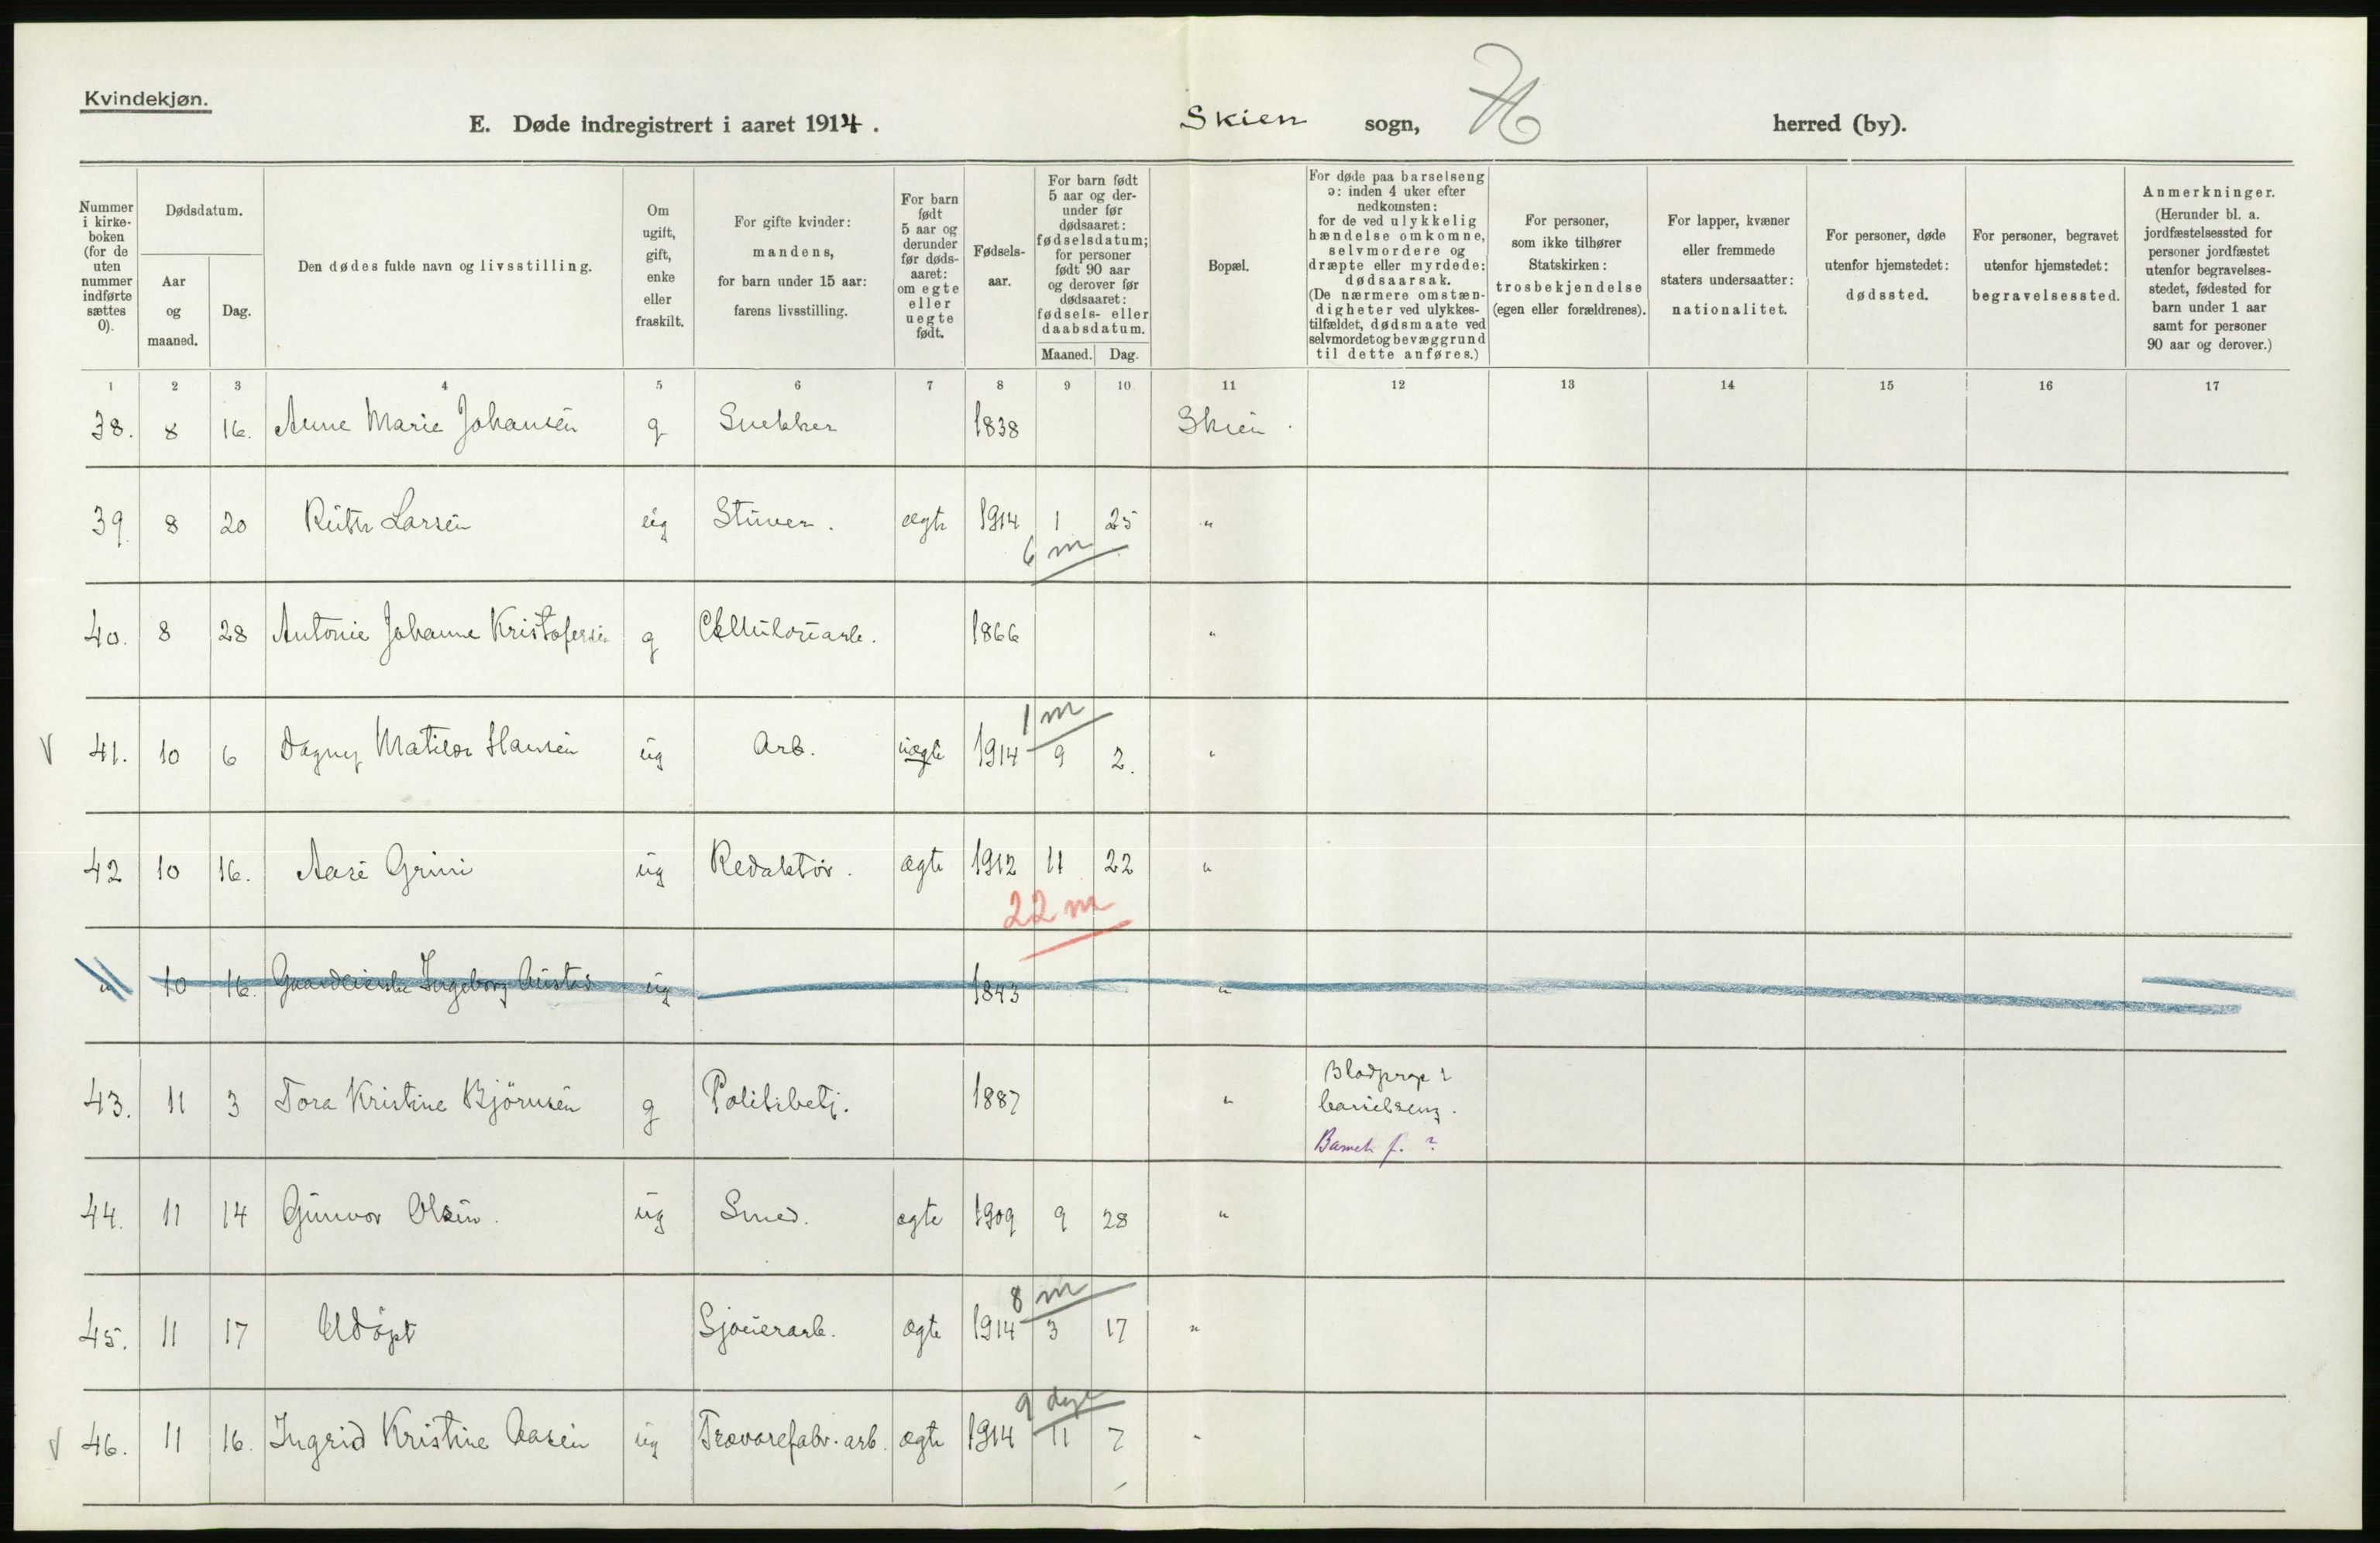 Kvindekjøn.
E. Døde indregistrert i aaret 1914. Skien sogn, herred (by).
Nummer i kirkeboken (for de uten nummer indførte sættes 0).
Dødsdatum.
Aar og maaned.
Dag.
Den dødes fulde navn og livsstilling.
Om ugift, gift, enke eller fraskilt.
For gifte kvinder: mandens, for barn under 15 aar: farens livsstilling.
For barn født 5 aar og derunder før dødsaaret: om egte eller uegte født.
Fødselsaar.
For barn født 5 aar og derunder før dødsaaret: fødselsdatum; for personer født 90 aar og derover før dødsaaret: fødsels- eller daabsdatum.
Maaned. Dag.
Bopæl.
For døde paa barselseng ɔ: inden 4 uker efter nedkomsten: for de ved ulykkelig hændelse omkomne, selvmordere og dræpte eller myrdede: dødsaarsak. (De nærmere omstændigheter ved ulykkestilfældet, dødsmaate ved selvmordet og bevæggrund til dette anføres.)
For personer, som ikke tilhører Statskirken: trosbekjendelse (egen eller forældrenes).
For lapper, kvæner eller fremmede staters undersaatter: nationalitet.
For personer, døde utenfor hjemstedet: dødssted.
For personer, begravet utenfor hjemstedet: begravelsessted.
Anmerkninger. (Herunder bl. a. jordfæstelsessted for personer jordfæstet utenfor begravelsesstedet, fødested for barn under 1 aar samt for personer 90 aar og derover.)
1 2 3 4 5 6 7 8 9 10 11 12 13 14 15 16 17
38. 8 16. Anne Marie Johansen g Snekker 1838 Skien.
39. 8 20 Ruth Larsen ug Stuver. ægte 1914 1 25 "
6 m
40. 8 28 Antonie Johanne Kristofersen g Cellulosearb. 1866 "
1 m
V 41. 10 6 Dagny Matilde Hansen ug Arb. uægte 1914 9 2. "
42 10 16. Aase Grini ug Redaktör. ægte 1912 11 22 "
22 m
" 10 16. Gaardeierske Ingeborg Austad ug 1843 "
43. 11 3 Tora Kristine Björnsen g Politibetj. 1887 " Blodprop i
barselseng.
Barnet f. ?
44. 11 14 Gunvor Olsen. ug Smed. ægte 1909 9 28 "
8 m
45. 11 17 Udöpt Sjauerarb. ægte 1914 3 17 "
9 dage
V 46. 11 16. Ingrid Kristine Aasen ug Trævarefabr. arb. ægte 1914 11 7 "